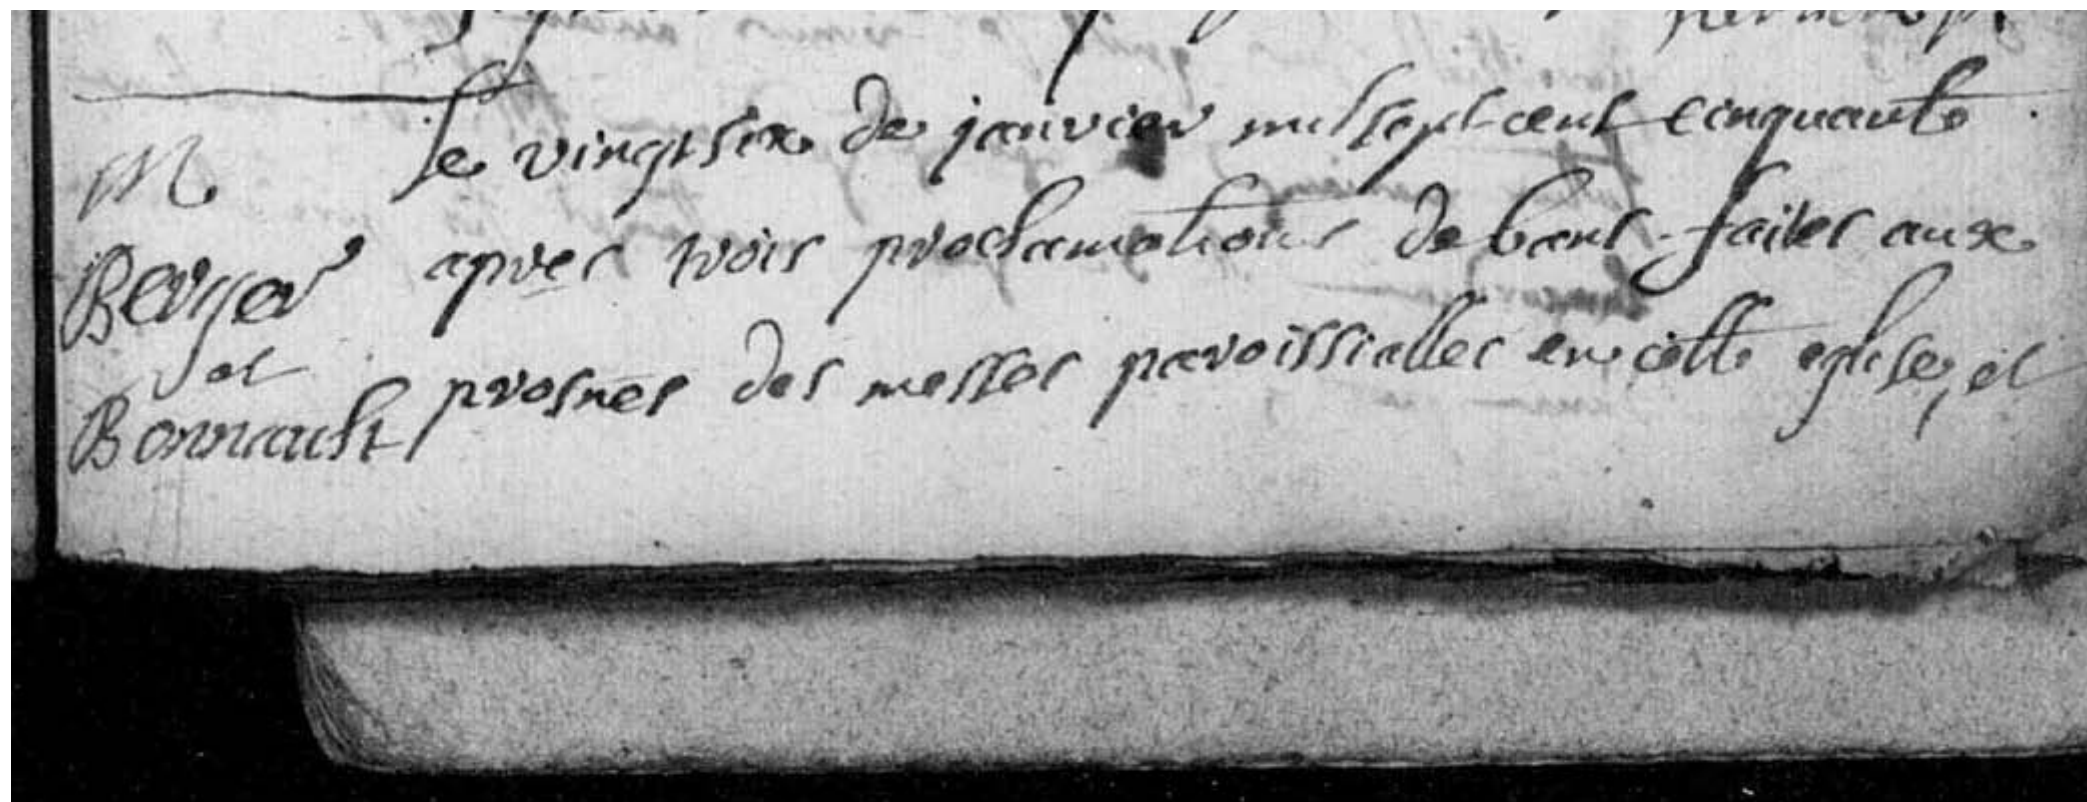 M
Berger
et
Bonnault
Le vingt six de janvier mil sept cent cinquante
apres trois proclamations de bans faites aux
prosnes des messes paroissialles en cette eglise, et